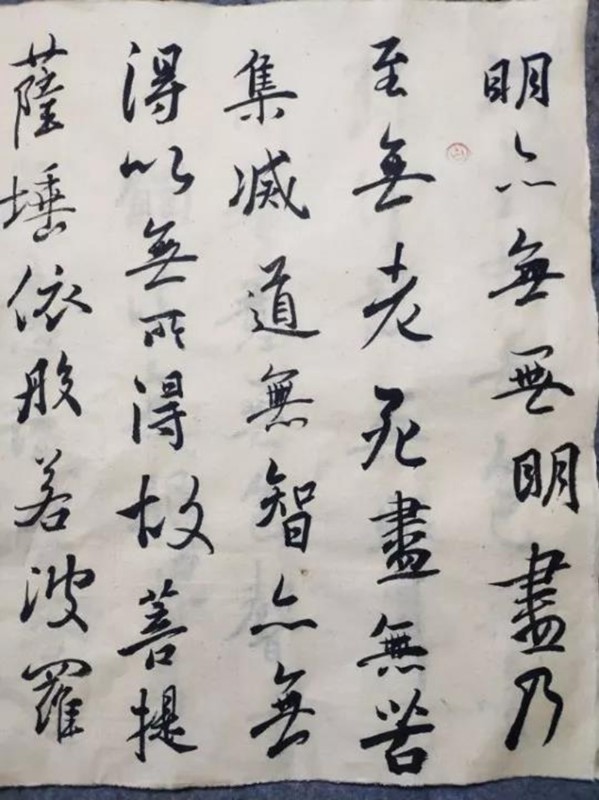 明亦無無明盡乃
至無老死盡無苦
集滅道無智亦無
得以無所得故菩提
薩埵依般若波羅